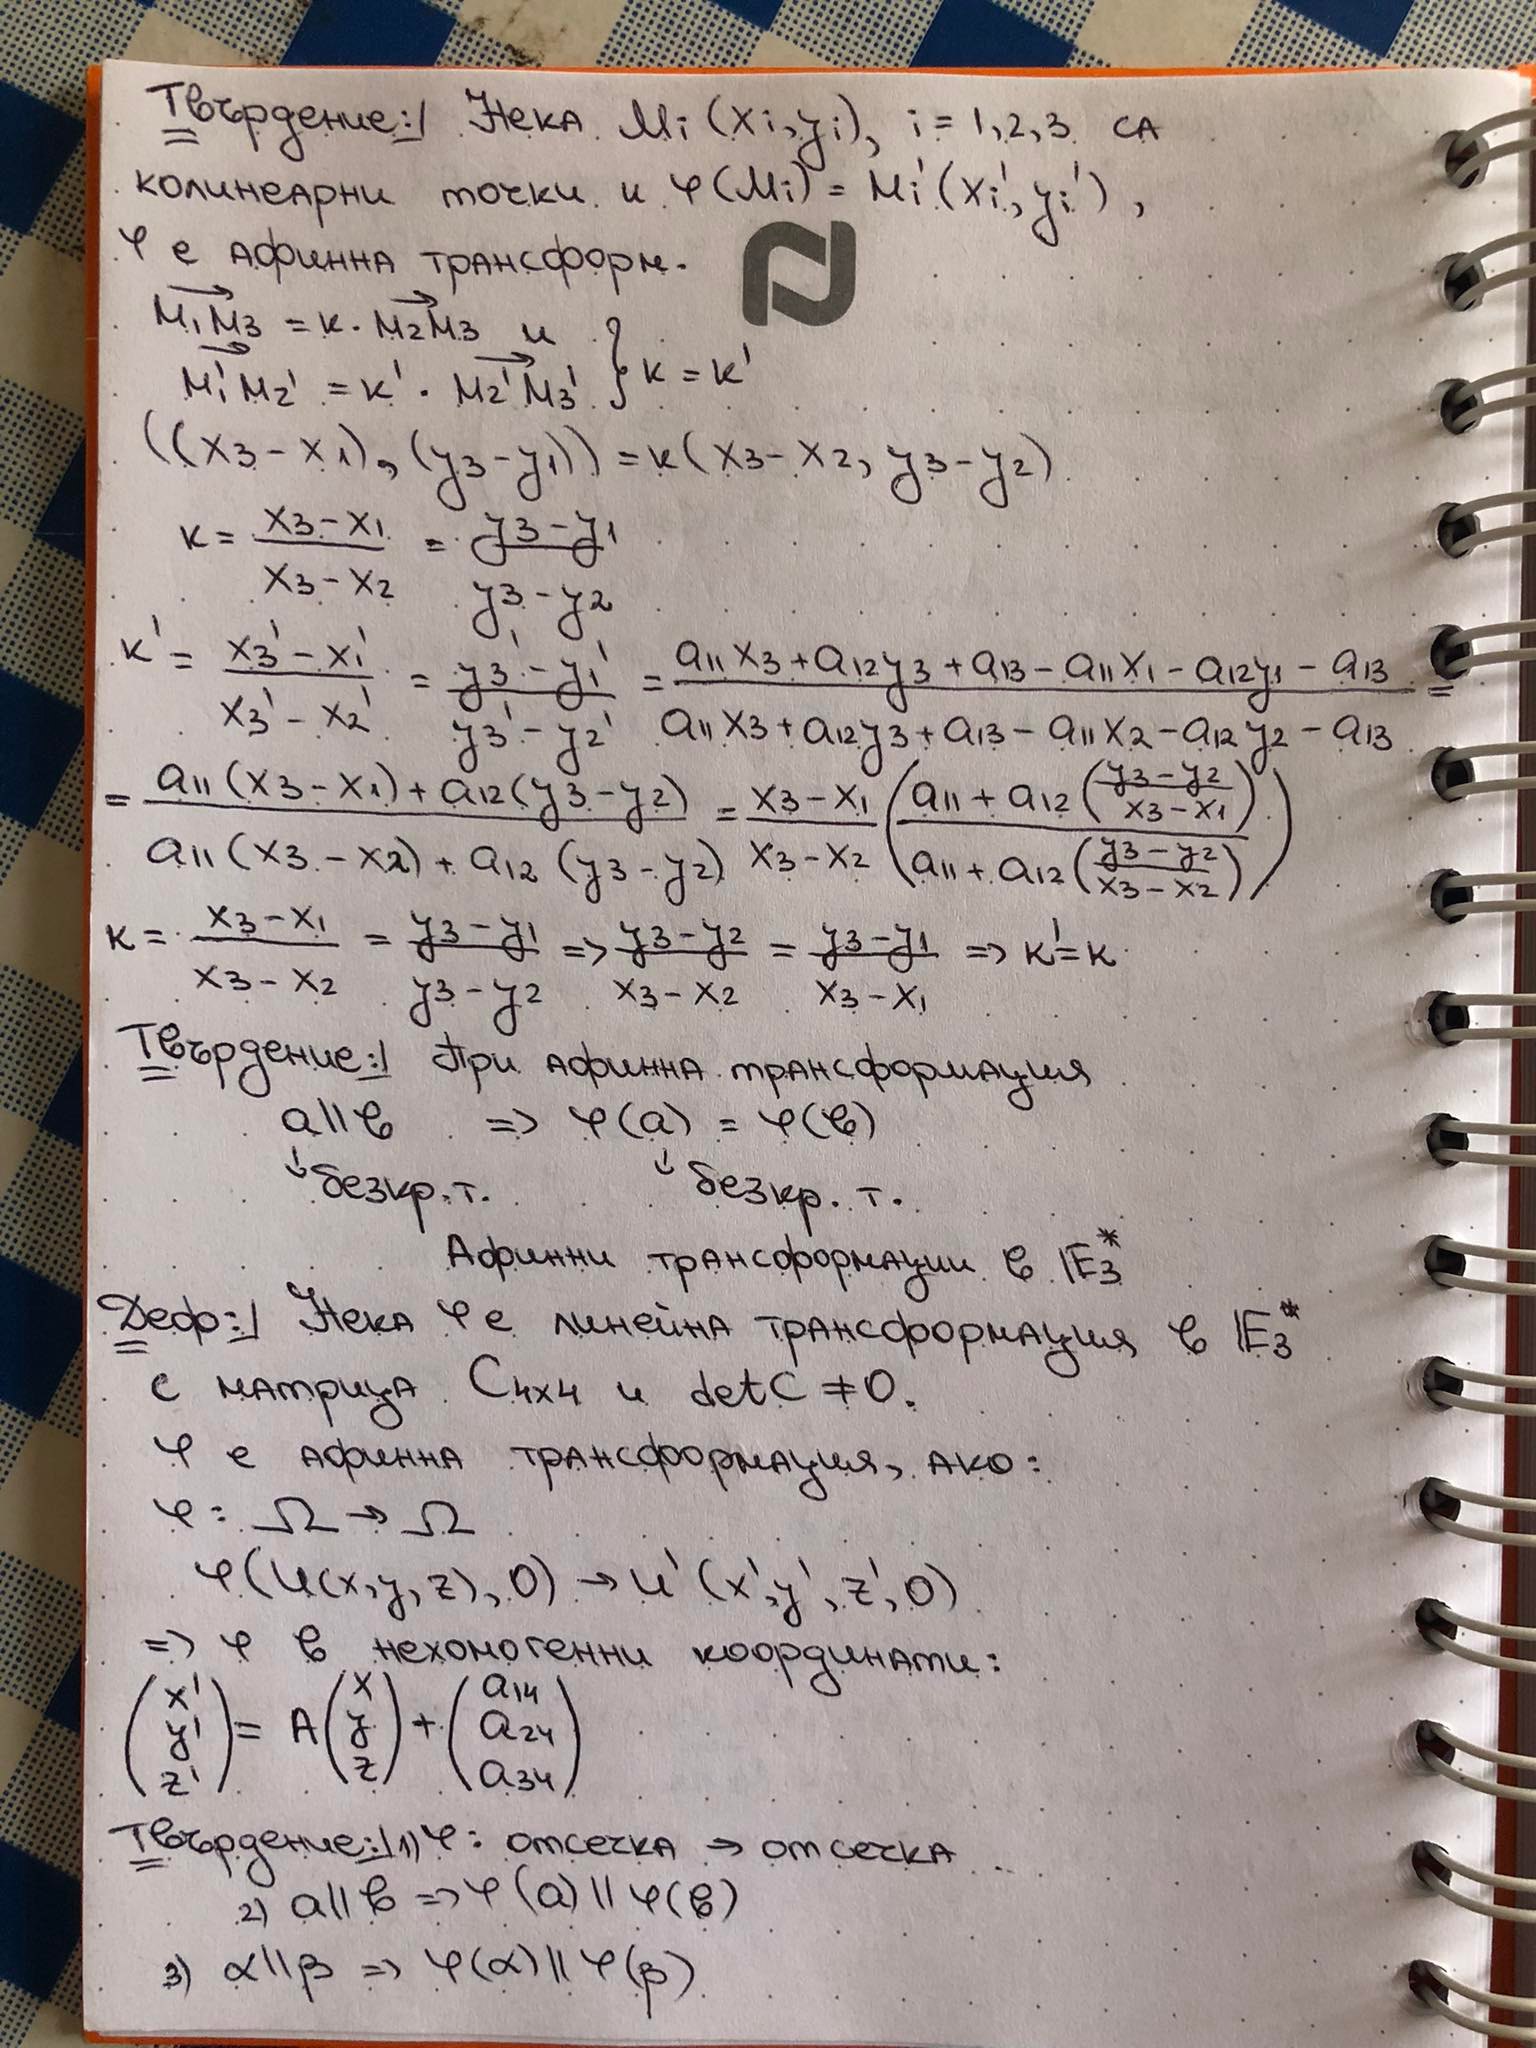 Твърдение:/ Нека Mi (xi, yi), i = 1, 2, 3 са
колинеарни точки и φ(Mi) = Mi'(xi', yi'),
φ е афинна трансформ.
M1M3 = k. M2M3 и
M1'M2' = k'. M2'M3' } k = k'
((x3 - x1), (y3 - y1)) = k(x3 - x2, y3 - y2)
k = (x3 - x1)/(x3 - x2) = (y3 - y1)/(y3 - y2)
k' = (x3' - x1')/(x3' - x2') = (y3' - y1')/(y3' - y2') = (a11x3 + a12y3 + a13 - a11x1 - a12y1 - a13)/(a11x3 + a12y3 + a13 - a11x2 - a12y2 - a13) =
= (a11(x3 - x1) + a12(y3 - y2))/(a11(x3 - x2) + a12(y3 - y2)) = (x3 - x1)/(x3 - x2) ((a11 + a12((y3 - y2)/(x3 - x1)))/(a11 + a12((y3 - y2)/(x3 - x2))))
k = (x3 - x1)/(x3 - x2) = (y3 - y1)/(y3 - y2) => (y3 - y2)/(x3 - x2) = (y3 - y1)/(x3 - x1) => k' = k
Твърдение:/ При афинна трансформация
a || b => φ(a) = φ(b)
↓ безкр. т. ↓ безкр. т.
Афинни трансформации в E3*
Деф:/ Нека φ е линейна трансформация в E3*
с матрица C4x4 и detC ≠ 0.
φ е афинна трансформация, ако:
φ: Ω → Ω
φ(U(x, y, z), 0) → U'(x', y', z', 0)
=> φ в нехомогенни координати:
(x' y' z') = A (x y z) + (a14 a24 a34)
Твърдение:/ 1) φ: отсечка → отсечка
2) a || b => φ(a) || φ(b)
3) α || β => φ(α) || φ(β)